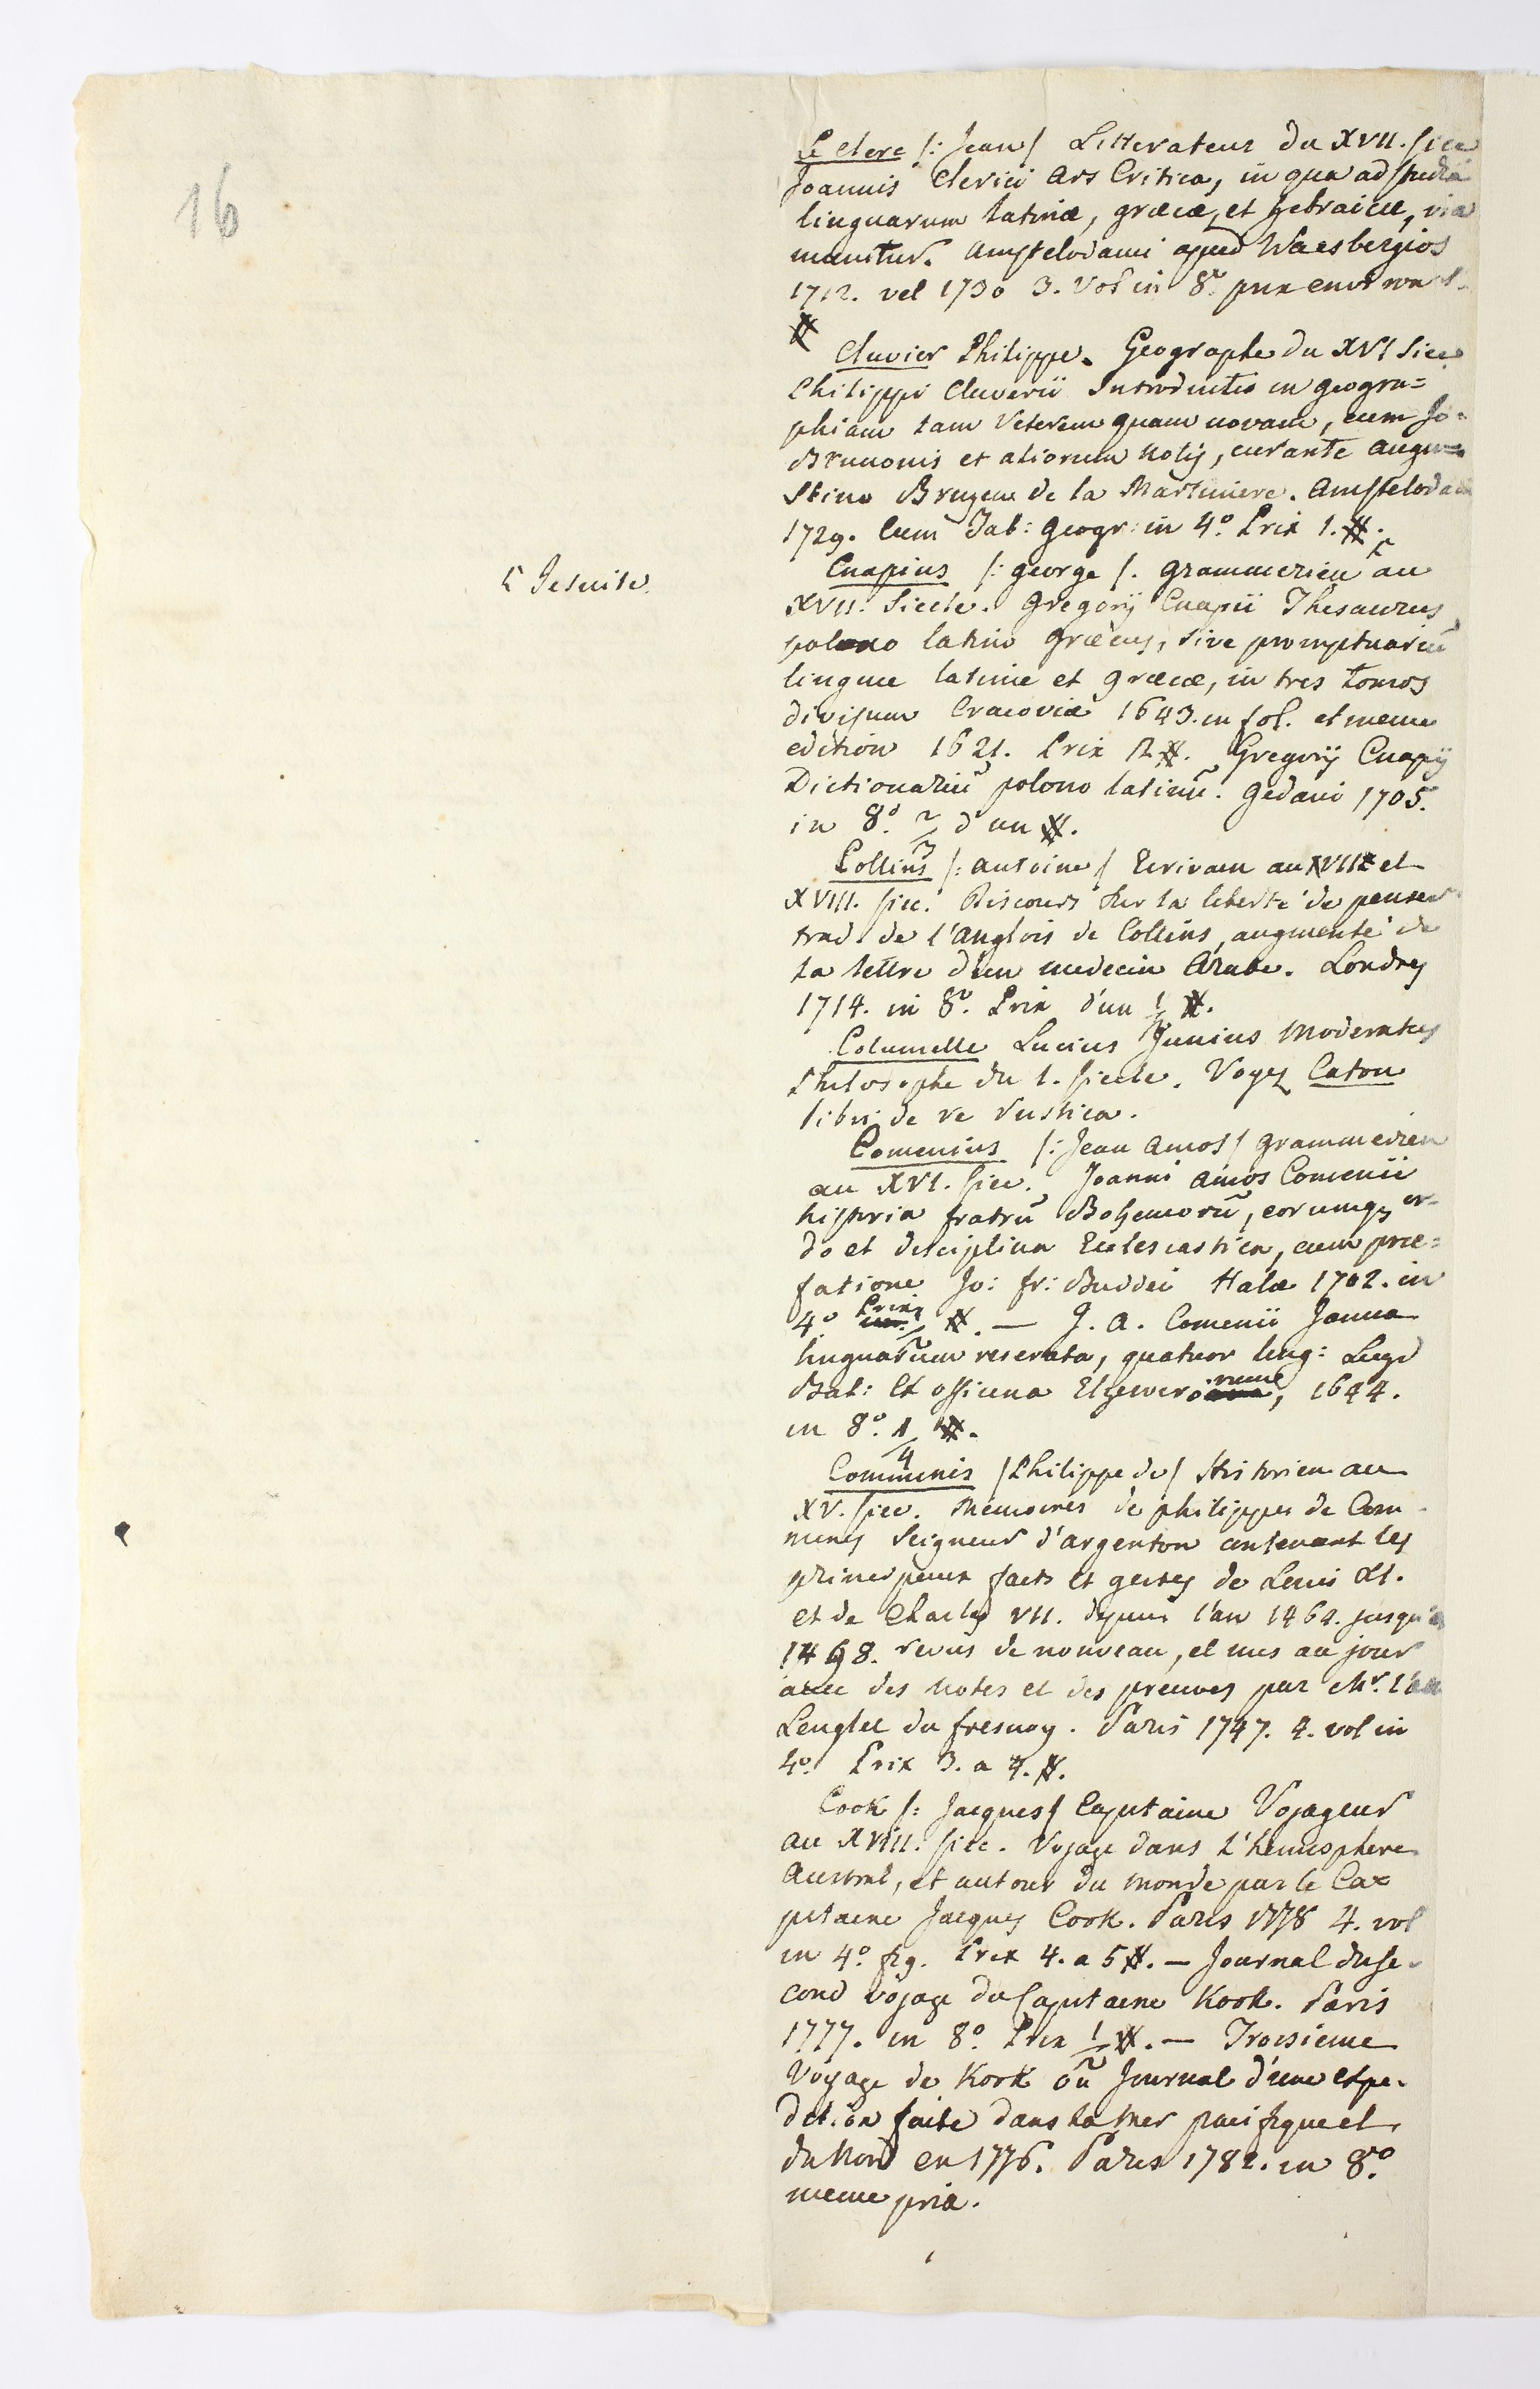 16
Le Clerc /: Jean / Litterateur du XVII. siec
Joannis Clerici Ars Critica, in qua ad studia
linguarum latinæ, græcæ, et hebraicæ, via
munitur. Amstelodami apud Waesbergios
1712. vel 1730 3. Vol in 8.º prix environ 1.
#
Cluvier Philippe. Geographe du XVI Siec.
Philippi Cluverii Introductio in geogra=
phiam tam Veterem quam novam, cum Jo=
Brunonis et aliorum notis, curante Augu=
stino Bruzen de la Martiniere. Amstelodami
1729. Cum Tab: Geogr: in 4º Prix 1. #.
Cnapius /: george /. grammerien au
ſ Jesuite.
XVII. Siecle. Gregorij Cnapii Thesaurus
polono latino græcus, sive promptuariū
linguæ latinæ et græcæ, in tres tomos
divisum Cracoviæ 1643. in fol. et meme
edition 1621. Prix 2 #. Gregorij Cnapij
Dictionariū polono latinū. Gedani 1705.
in 8º. 2/3 d'un #.
Collins /: Antoine / Ecrivain au XVII et
XVIII. siec. Discours sur la liberté de penser
trad. de l'Anglois de Collins, augmenté de
la lettre d'un medecin Arabe. Londres
1714. in 8º. Prix d'un 1/2 #.
Columelle Lucius Junius Moderatus
Philosophe du 1. siecle. Voyez Caton
libri de re rustica.
Comenius /: Jean Amos / grammerien
au XVI. siec. Joanni Amos Comenii
historia fratrū Bohemorū, eorumqz or=
do et disciplina Ecclesiastica, cum præ=
fatione Jo: fr: Buddei Halæ 1702. in
4º Prix 1/2 #. — J. A. Comenii Janua
linguarum reserata, quatuor ling: Lugd
Bat: Ex officina Elzeviro 1644.
in 8º. 1/4 #.
Communis / Philippe de / Historien au
XV. siec. Memoires de philippes de Com
mines Seigneur d'argenton contenant les
principeaux faits et gestes de Louis XI.
et de Charles VII. depuis l'an 1464. jusqu'a
1498. revus de nouveau, et mis au jour
avec des notes et des preuves par Mr. l'
Lenglet du fresnoy. Paris 1747. 4. vol in
4º. Prix 3. a 4. #.
Cook /: Jacques / Capitaine Voyageur
au XVIII. siec. Voyage dans l'hemisphere
Austral, et autour du monde par le Ca=
pitaine Jacques Cook. Paris 1778 4. vol
in 4º fig. Prix 4. a 5 #. — Journal du se=
cond voyage du Capitaine Kook. Paris
1777. in 8º Prix 1/2 #. — Troisieme
Voyage de Kook ou Journal d'une expe=
dition faite dans la Mer pacifique et
du Nord en 1776. Paris 1782. in 8º.
meme prix.